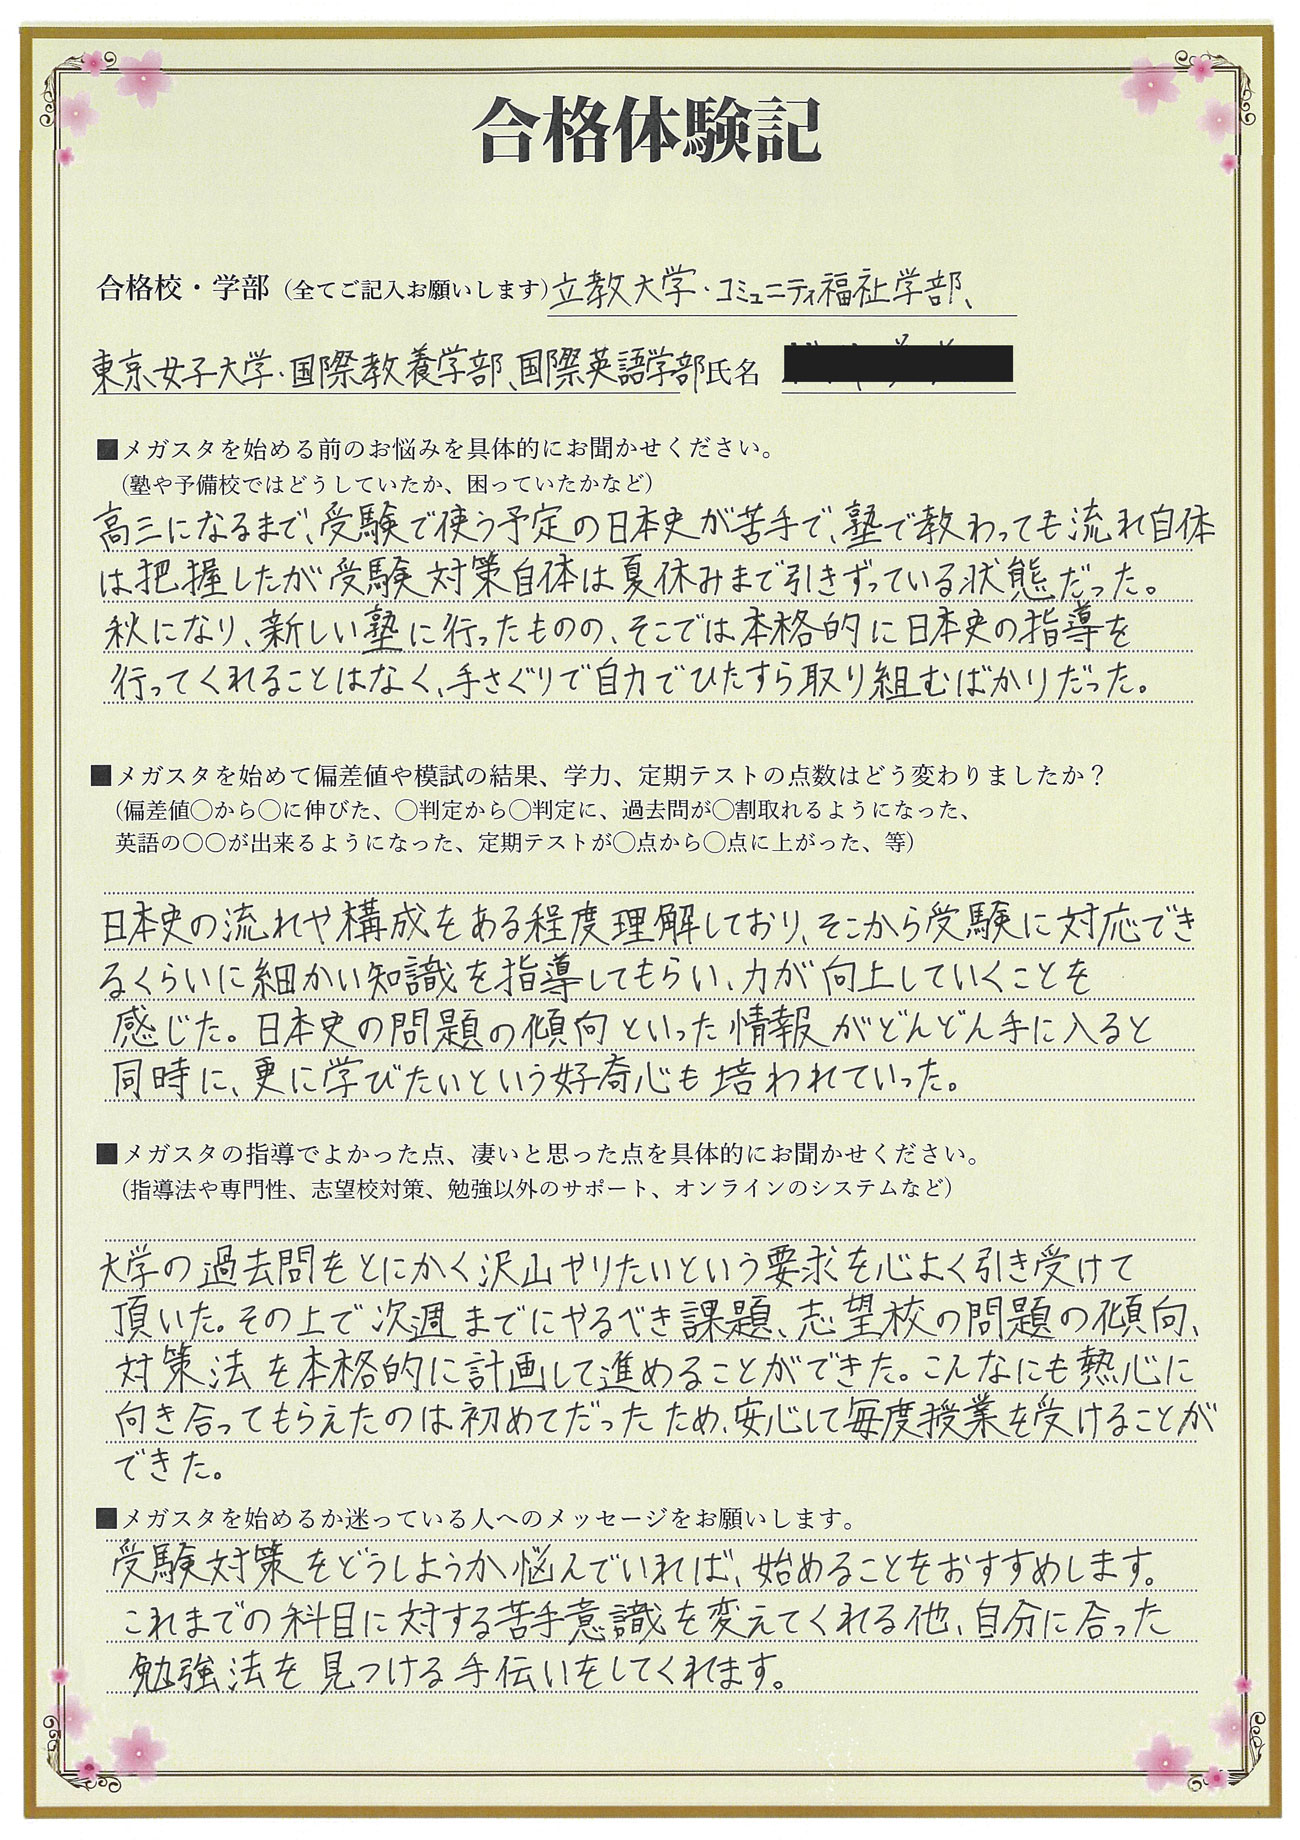 合格体験記
合格校・学部（全てご記入お願いします）立教大学・コミュニティ福祉学部、
東京女子大学・国際教養学部、国際英語学部 氏名
■メガスタを始める前のお悩みを具体的にお聞かせください。
（塾や予備校ではどうしていたか、困っていたかなど）
高三になるまで、受験で使う予定の日本史が苦手で、塾で教わっても流れ自体
は把握したが受験対策自体は夏休みまで引きずっている状態だった。
秋になり、新しい塾に行ったものの、そこでは本格的に日本史の指導を
行ってくれることはなく、手さぐりで自力でひたすら取り組むばかりだった。
■メガスタを始めて偏差値や模試の結果、学力、定期テストの点数はどう変わりましたか？
（偏差値〇から〇に伸びた、〇判定から〇判定に、過去問が〇割取れるようになった、
英語の〇〇が出来るようになった、定期テストが〇点から〇点に上がった、等）
日本史の流れや構成をある程度理解しており、そこから受験に対応でき
るくらいに細かい知識を指導してもらい、力が向上していくことを
感じた。日本史の問題の傾向といった情報がどんどん手に入ると
同時に、更に学びたいという好奇心も培われていった。
■メガスタの指導でよかった点、凄いと思った点を具体的にお聞かせください。
（指導法や専門性、志望校対策、勉強以外のサポート、オンラインのシステムなど）
大学の過去問をとにかく沢山やりたいという要求を心よく引き受けて
頂いた。その上で次週までにやるべき課題、志望校の問題の傾向、
対策法を本格的に計画して進めることができた。こんなにも熱心に
向き合ってもらえたのは初めてだったため、安心して毎度授業を受けることが
できた。
■メガスタを始めるか迷っている人へのメッセージをお願いします。
受験対策をどうしようか悩んでいれば、始めることをおすすめします。
これまでの科目に対する苦手意識を変えてくれる他、自分に合った
勉強法を見つける手伝いをしてくれます。